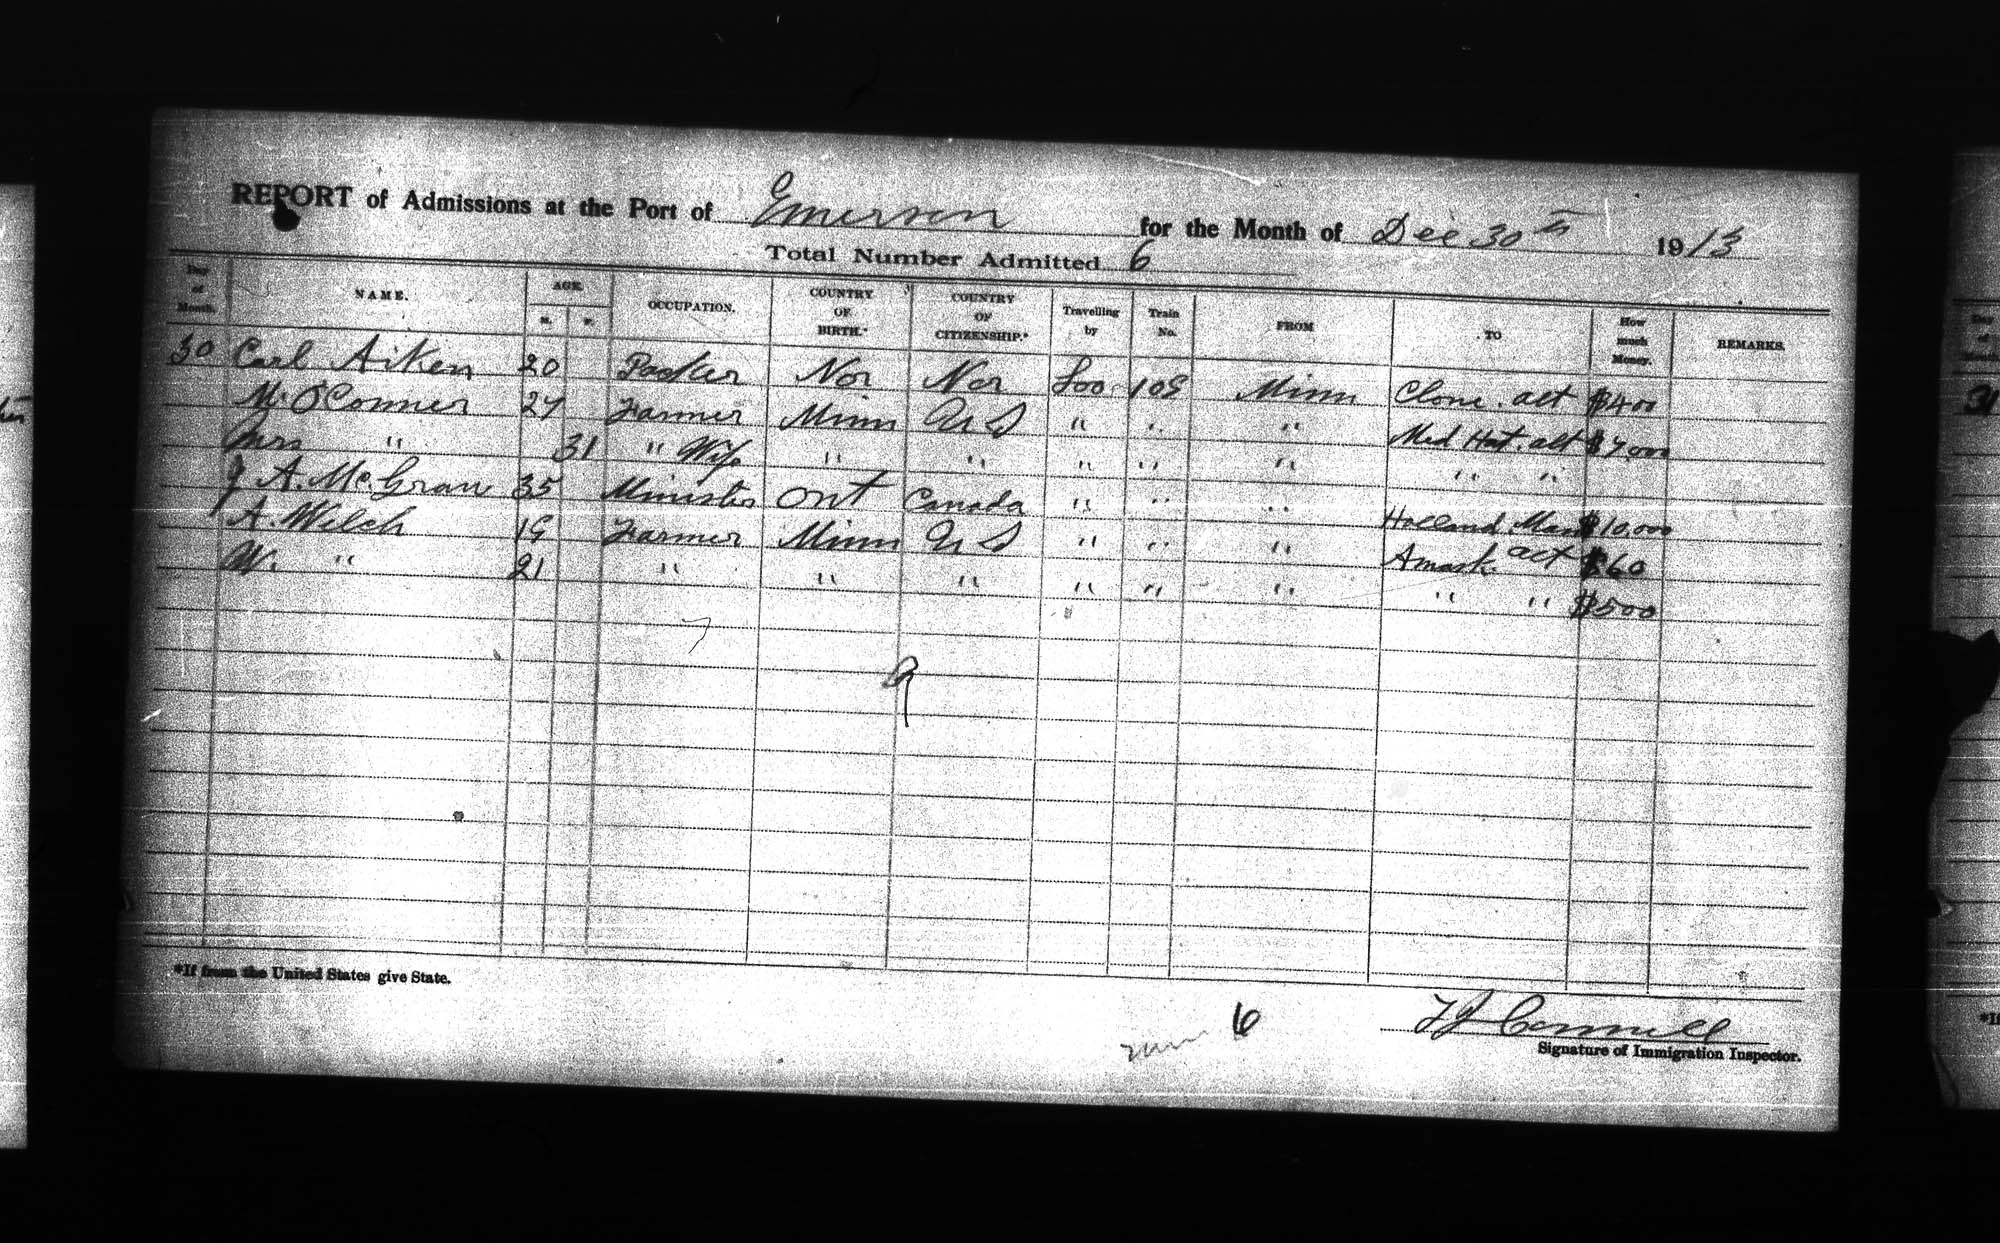 REPORT of Admissions at the Port of Emerson for the Month of Dec 30th 1913
Total Number Admitted 6
Day of Month. NAME. AGE. M. F. OCCUPATION. COUNTRY OF BIRTH.* COUNTRY OF CITIZENSHIP.* Travelling by Train No. FROM TO How much Money. REMARKS.
30 Carl Aiken 20 Nor Nor Soo 109 Minn alt $400
M. O'Conner 27 Farmer Minn U S " " " Med Hat. alt $7,000
Mrs " 31 " Wife " " " " " " "
J A. McGran 35 Minister Ont Canada " " " Holland Man $10,000
A. Welch 19 Farmer Minn U S " " " alt $60
W. " 21 " " " " " " " " $500
*If from the United States give State.
6
Signature of Immigration Inspector.
31